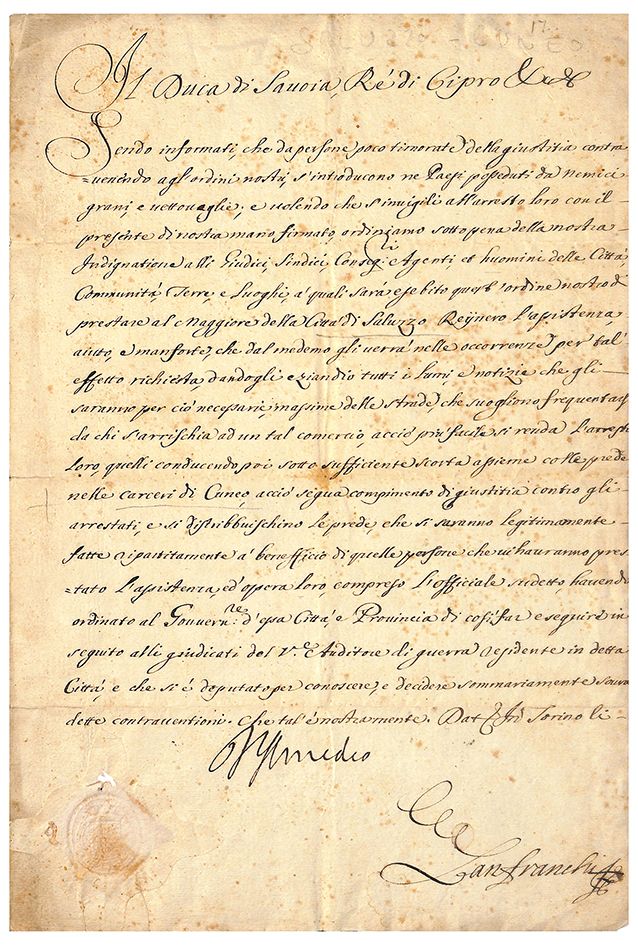 17.
Il Duca di Savoia, Ré di Cipro &c
Sendo informati, che da persone poco timorate della giustitia contra
=uenendo agl'ordini nostri, s'introducono ne Paesi posseduti da nemici
grani, e vettovaglie; e uolendo che s'inuigili all'arresto loro con il
presente di nostra mano firmato, ordiniamo sotto pena della nostra
Indignatione alli Giudici, Sindici, Consig.li Agenti, et huomini delle Città
Communità, Terre, e Luoghi, a' quali sarà esebito quest'ordine nostro di
prestare al Maggiore della Città di Saluzzo Reijnero L'assistenza,
aiuto, e manforte, che dal medemo gli uerrà nelle occorrenze per tal'
effetto richiesta dandogli eziandio tutti i Lumi, e notizie che gli
saranno per ciò necessarie, massime delle strade, che sogliono frequentarsi
da chi s'arrischia ad un tal comercio, acciò più facile si renda L'arresto
Loro, quelli conducendo poi sotto sufficiente scorta assieme colle prede
nelle carceri di Cuneo, acciò segua compimento di giustitia contro gli
arrestati, e si distribbuischino Le prede, che si saranno legitimamente
fatte ripartitamente a' benefficio di quelle persone che ui hauranno pres
=tato L'assistenza, ed'opera Loro, compreso L'officiale sudetto, hauendo
ordinato al Gouvern.re d'essa Città, e Provincia di così far eseguire in
seguito alli giudicati del Auditore di guerra residente in detta
Città, e che si è deputato per conoscere, e decidere sommariamente soura
dette contrauentioni. Che tal'è nostra mente. Dat Torino li
V Amedeo
Lanfranchi